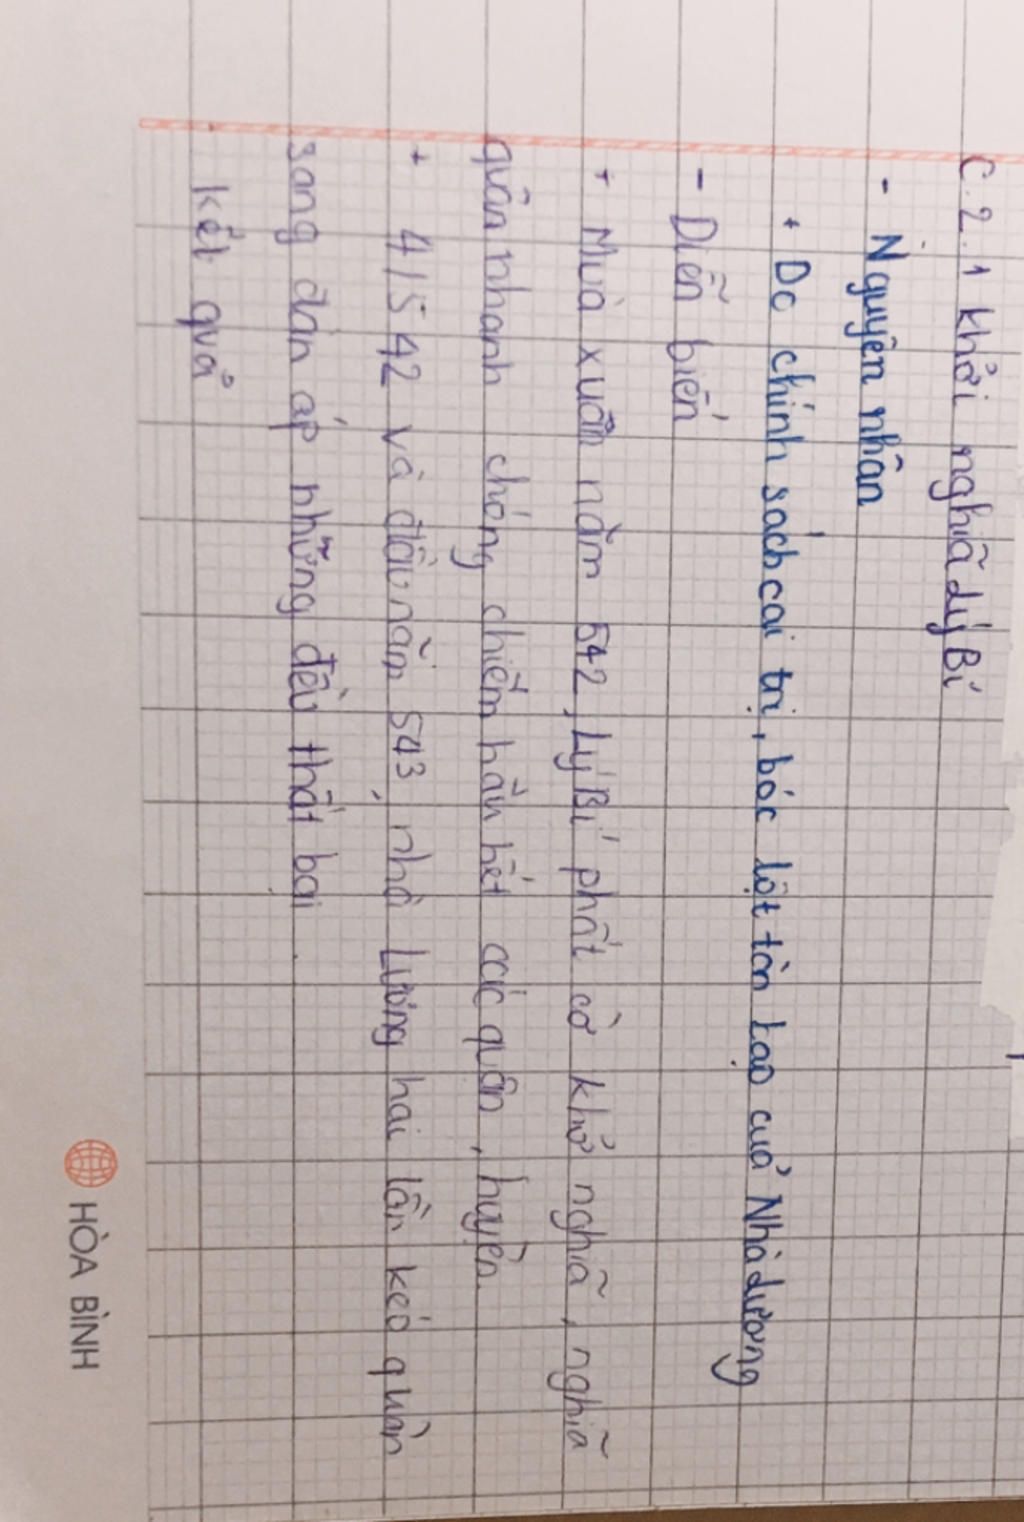 C.2.1 khởi nghĩa Lý Bí
- Nguyên nhân
+ Do chính sách cai trị, bóc lột tàn tạo của Nhà dương
- Diễn biến
+ Mùa xuân năm 542, Lý Bí phất cờ khở nghĩa, nghĩa
quân nhanh chóng chiếm hầu hết các quận, huyện.
+ 4/542 và đầu năm 543, nhà Lương hai lần kéo quân
sang đàn áp nhưng đều thất bại.
kết quả
HÒA BÌNH